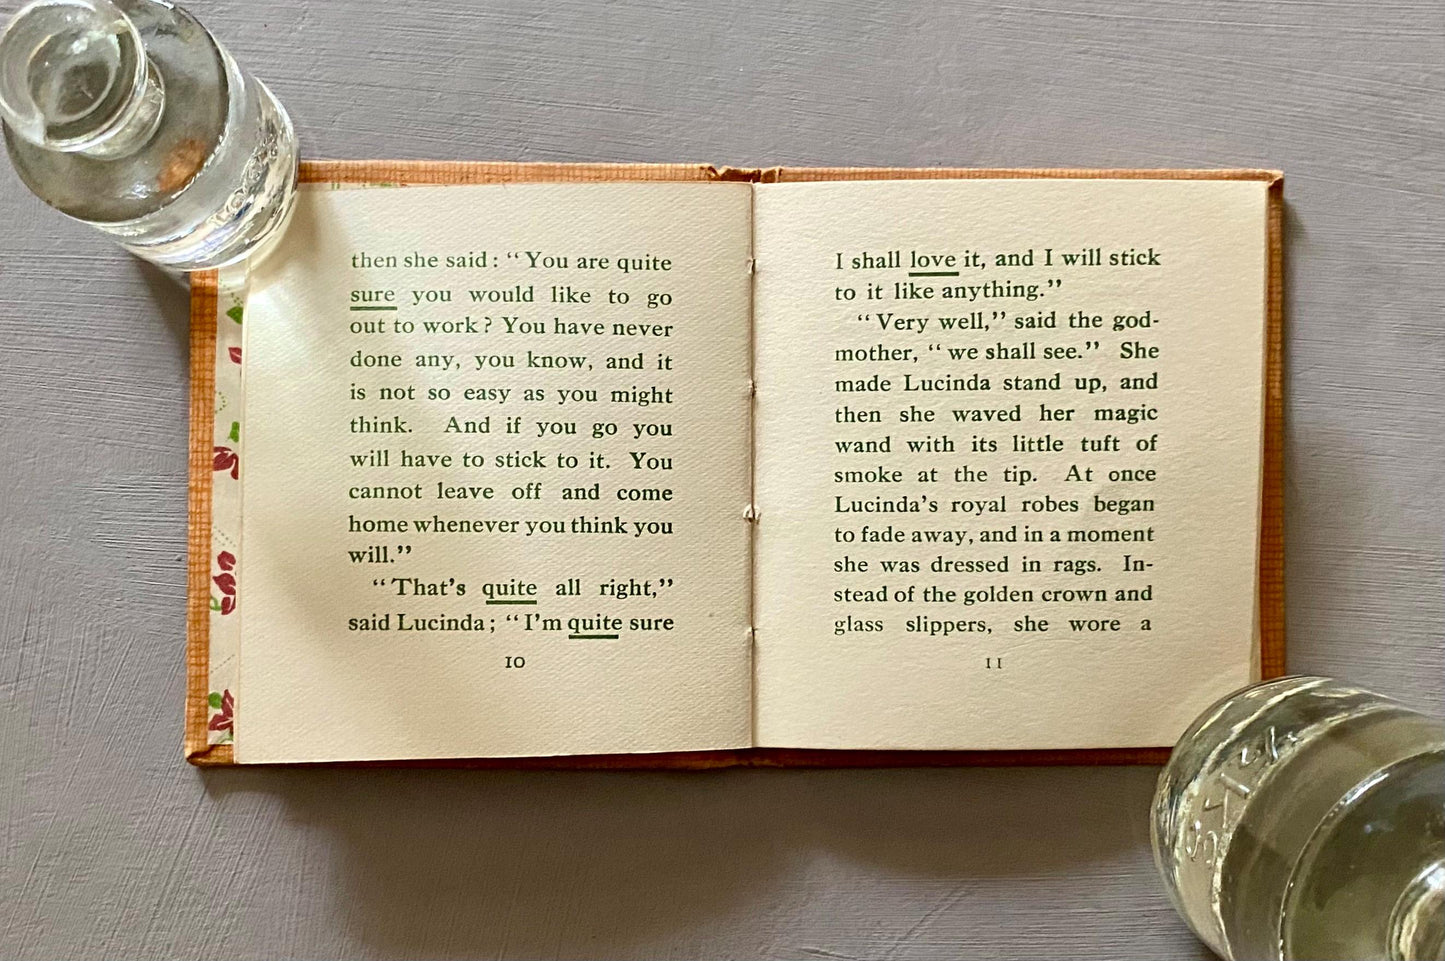 then she said: “You are quite
sure you would like to go
out to work? You have never
done any, you know, and it
is not so easy as you might
think. And if you go you
will have to stick to it. You
cannot leave off and come
home whenever you think you
will.”
“That’s quite all right,”
said Lucinda; “I’m quite sure
10
I shall love it, and I will stick
to it like anything.”
“Very well,” said the god-
mother, “we shall see.” She
made Lucinda stand up, and
then she waved her magic
wand with its little tuft of
smoke at the tip. At once
Lucinda’s royal robes began
to fade away, and in a moment
she was dressed in rags. In-
stead of the golden crown and
glass slippers, she wore a
11